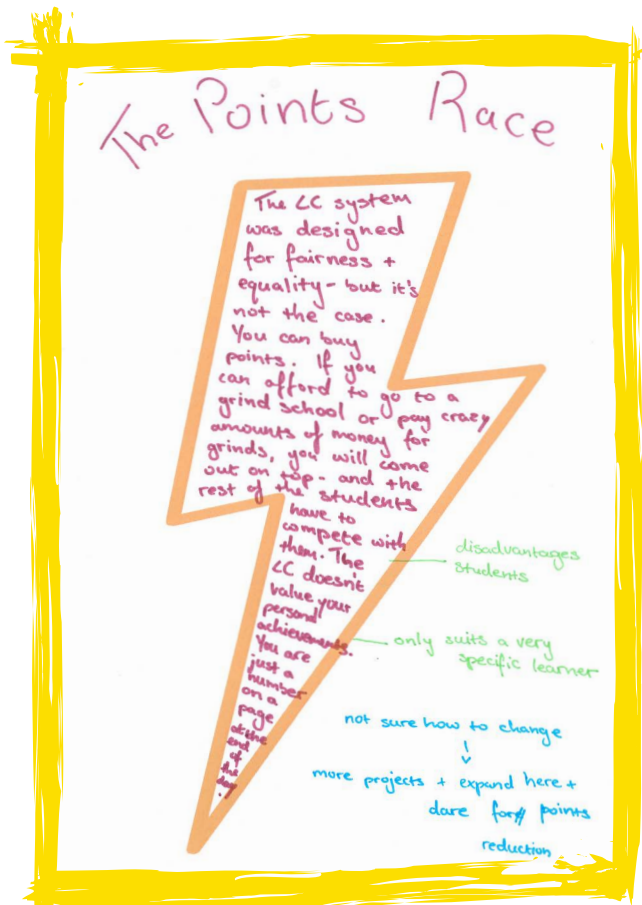 The Points Race
The LC system
was designed
for fairness +
equality - but it's
not the case.
You can buy
points. If you
can afford to go to a
grind school or pay crazy
amounts of money for
grinds, you will come
out on top - and the
rest of the students
have to
compete with
them. The
LC doesn't
value your
personal
achievements.
You are
just a
number
on a
page
at the
end
of
the
day.
disadvantages
students
only suits a very
specific learner
not sure how to change
more projects + expand here +
dare for points
reduction